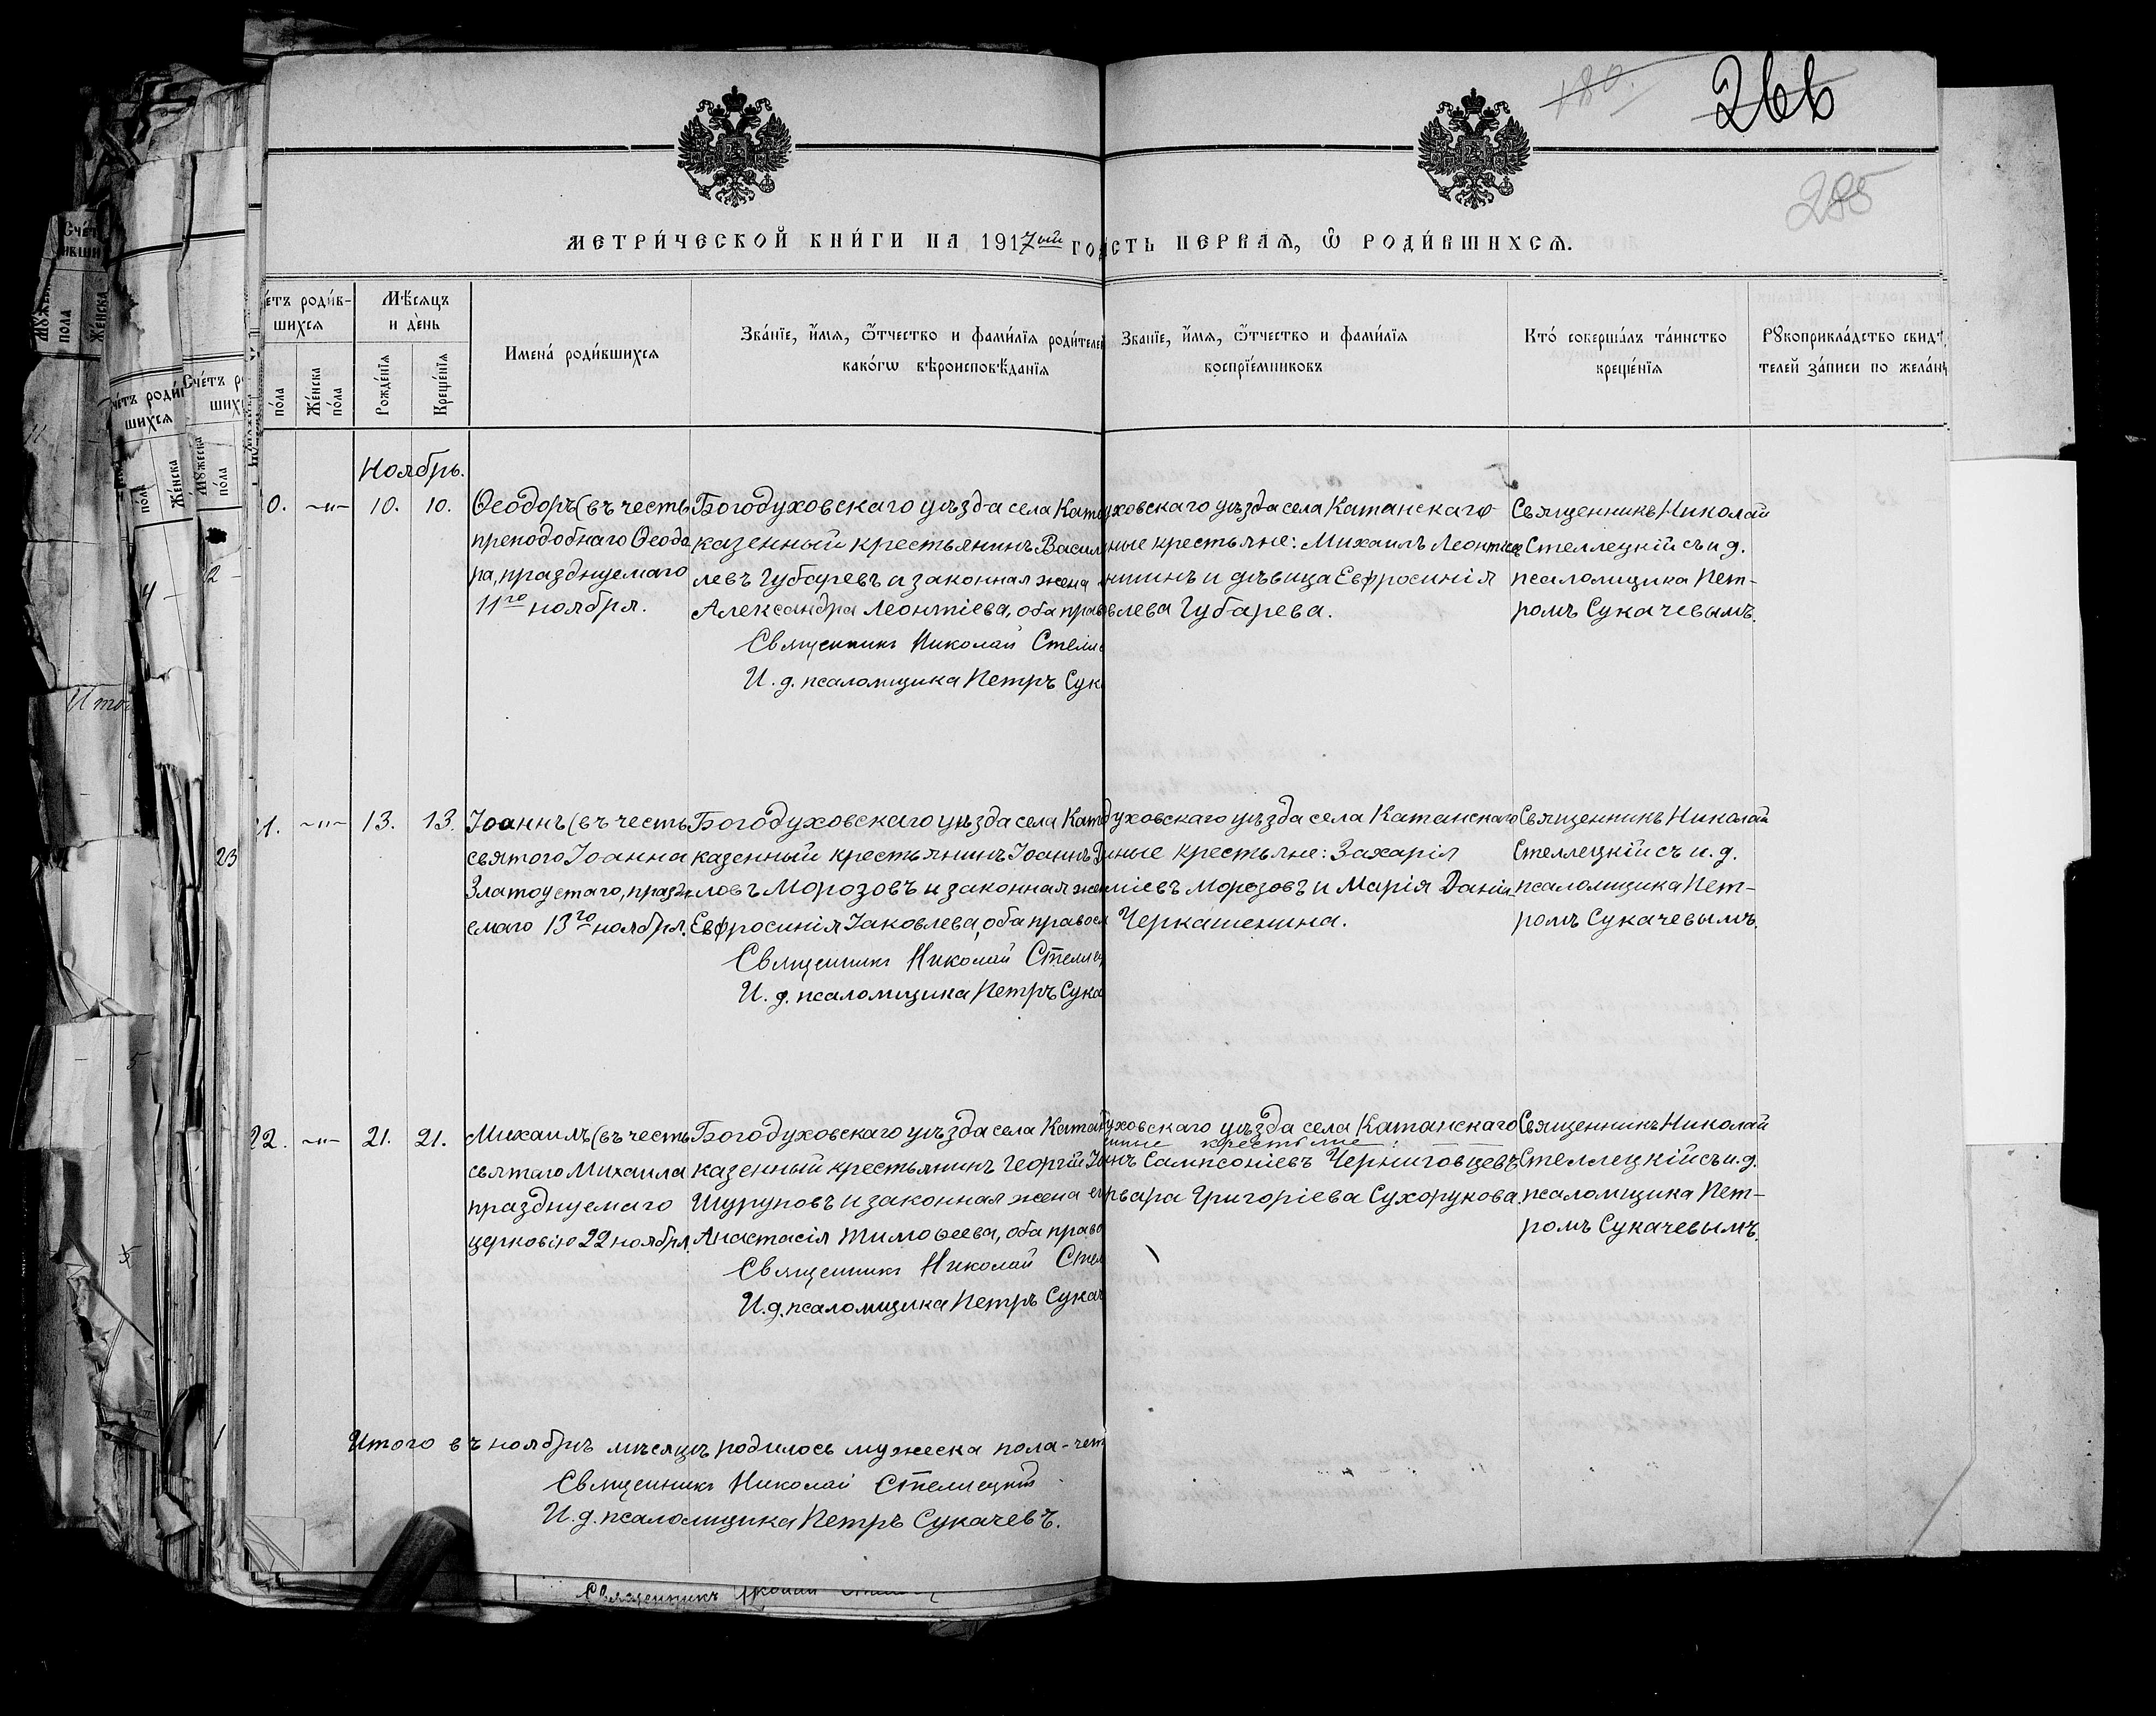 180.
266
285
МЕТРИ́ЧЕСКОЙ КНИ́ГИ НА 1917ый ГО
СТЬ ПЕРВАЯ, Ѡ РОДИ́ВШИХСЯ.
етъ роди́в-
шихся
Мѣ́сяцъ
и де́нь
пола
Же́нска
по́ла
Рожде́нїя
Креще́нїя
Имена́ роди́вшихся
Зва́нїе, и́мя, ѻ҆́тчество и фами́лїя роди́телей
како́гѡ вѣроисповѣ́данїя
Зва́нїе, и́мя, ѻ҆́тчество и фами́лїя
воспрїе́мниковъ
Кто́ соверша́лъ та́инство
креще́нїя
Рꙋкоприкла́дство свидѣ
телей за́писи по жела́нї
Ноябрь.
0. -"- 10. 10.
Ѳеодоръ (въ честь
преподобнаго Ѳеодо
ра, празднуемаго
11го ноября.
Богодуховскаго уѣзда села Ката
казенный крестьянинъ Васил
левъ Губаревъ и законная жена
Александра Леонтіева, оба прав
Священникъ Николай Стелле
И. д. псаломщика Петръ Сук
уховскаго уѣзда села Катанскаго
ные крестьяне: Михаилъ Леонтіев
нишнъ и дѣвица Евфросинія
влева Губарева.
Священникъ Николай
Стеллецкій съ и. д.
псаломщика Пет-
ромъ Сукачевымъ.
21. -"- 13. 13.
Іоаннъ (въ честь
святого Іоанна
Златоустаго, праздн
емаго 13го ноября.
Богодуховскаго уѣзда села Ката
казенный крестьянинъ Іоаннъ Д
ловъ Морозовъ и законная жен
Евфросинія Іаковлева, оба правосл
Священникъ Николай Стеллец
И. д. псаломщика Петръ Сука
духовскаго уѣзда села Катанскаго
ные крестьяне: Захарія
міевъ Морозовъ и Марія Даніи
Черкашенина.
Священникъ Николай
Стеллецкій съ и. д.
псаломщика Пет-
ромъ Сукачевымъ.
22. -"- 21. 21.
Михаилъ (въ честь
святаго Михаила
празднуемаго
церковію 22 ноября.
Богодуховскаго уѣзда села Катан
казенный крестьянинъ Георгій Іо
Шуруповъ и законная жена ег
Анастасія Тимоѳеева, оба право
Священникъ Николай Стел
И. д. псаломщика Петръ Сукач
уховскаго уѣзда села Катанскаго
нные крестьяне:
нъ Сампсоніевъ Черниговцевъ
рвара Григоріева Сухорукова.
Священникъ Николай
Стеллецкій съ и. д.
псаломщика Пет-
ромъ Сукачевымъ.
Итого въ ноябрѣ мѣсяцѣ родилось мужеска пола - чет
Священникъ Николай Стеллецкій
И. д. псаломщика Петръ Сукачевъ.